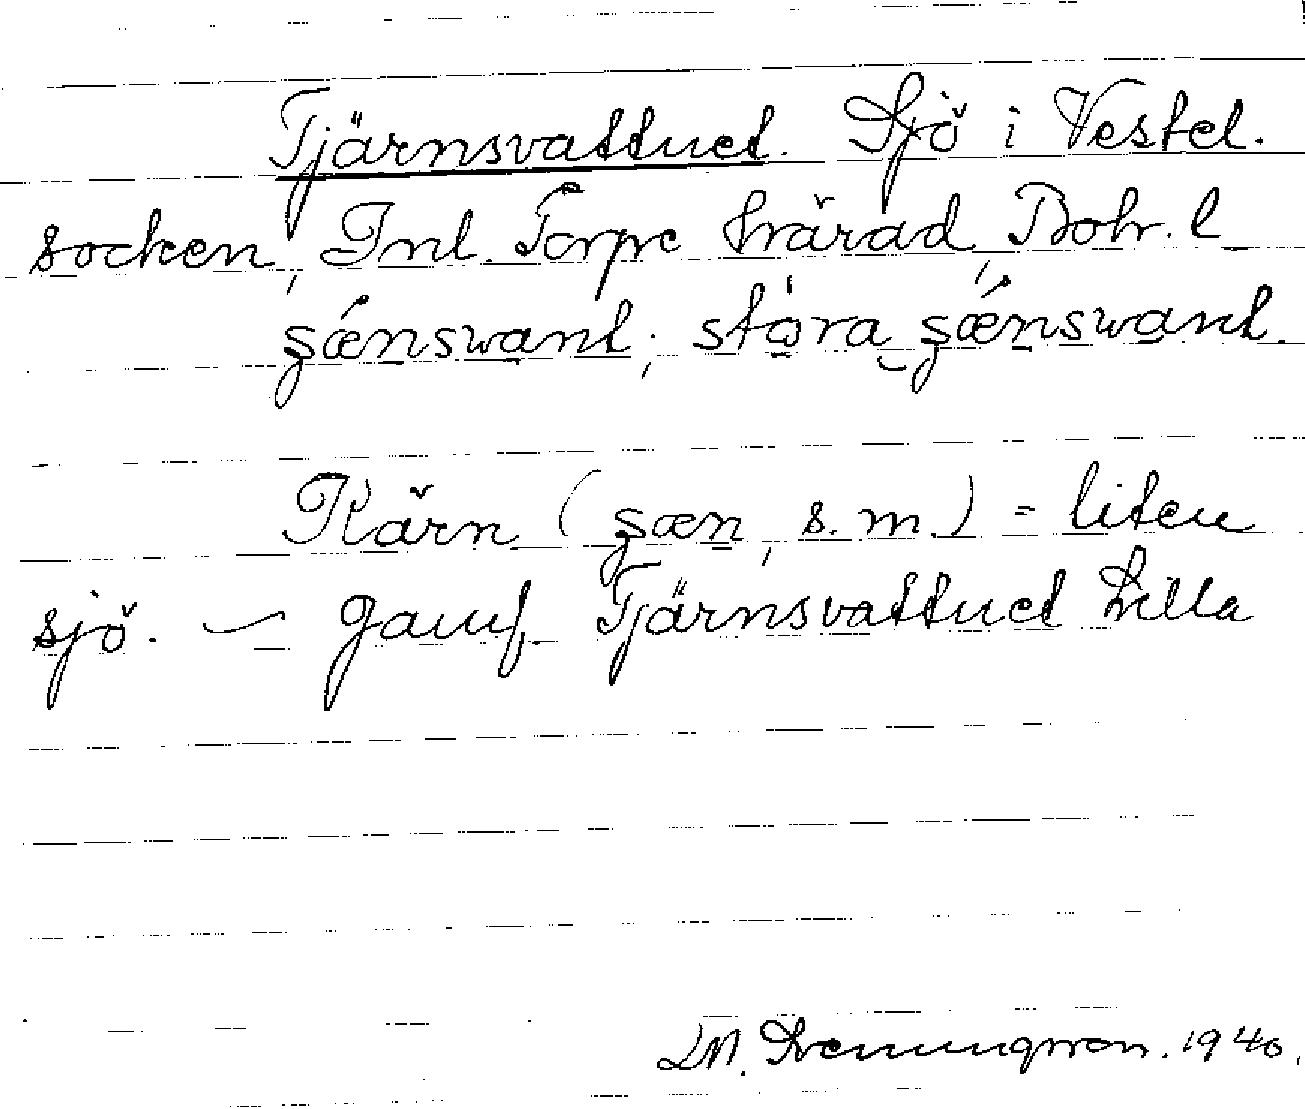 Tjärnsvattnet. Sjö i Vestel.
socken, Inl. Torpe härad, Boh. l
şǽnswanl; stora şǽnswanl.
Kärn (şæn, s.m.) = liten
sjö. — Jämf. Tjärnsvattnet Lilla
M. 1940.